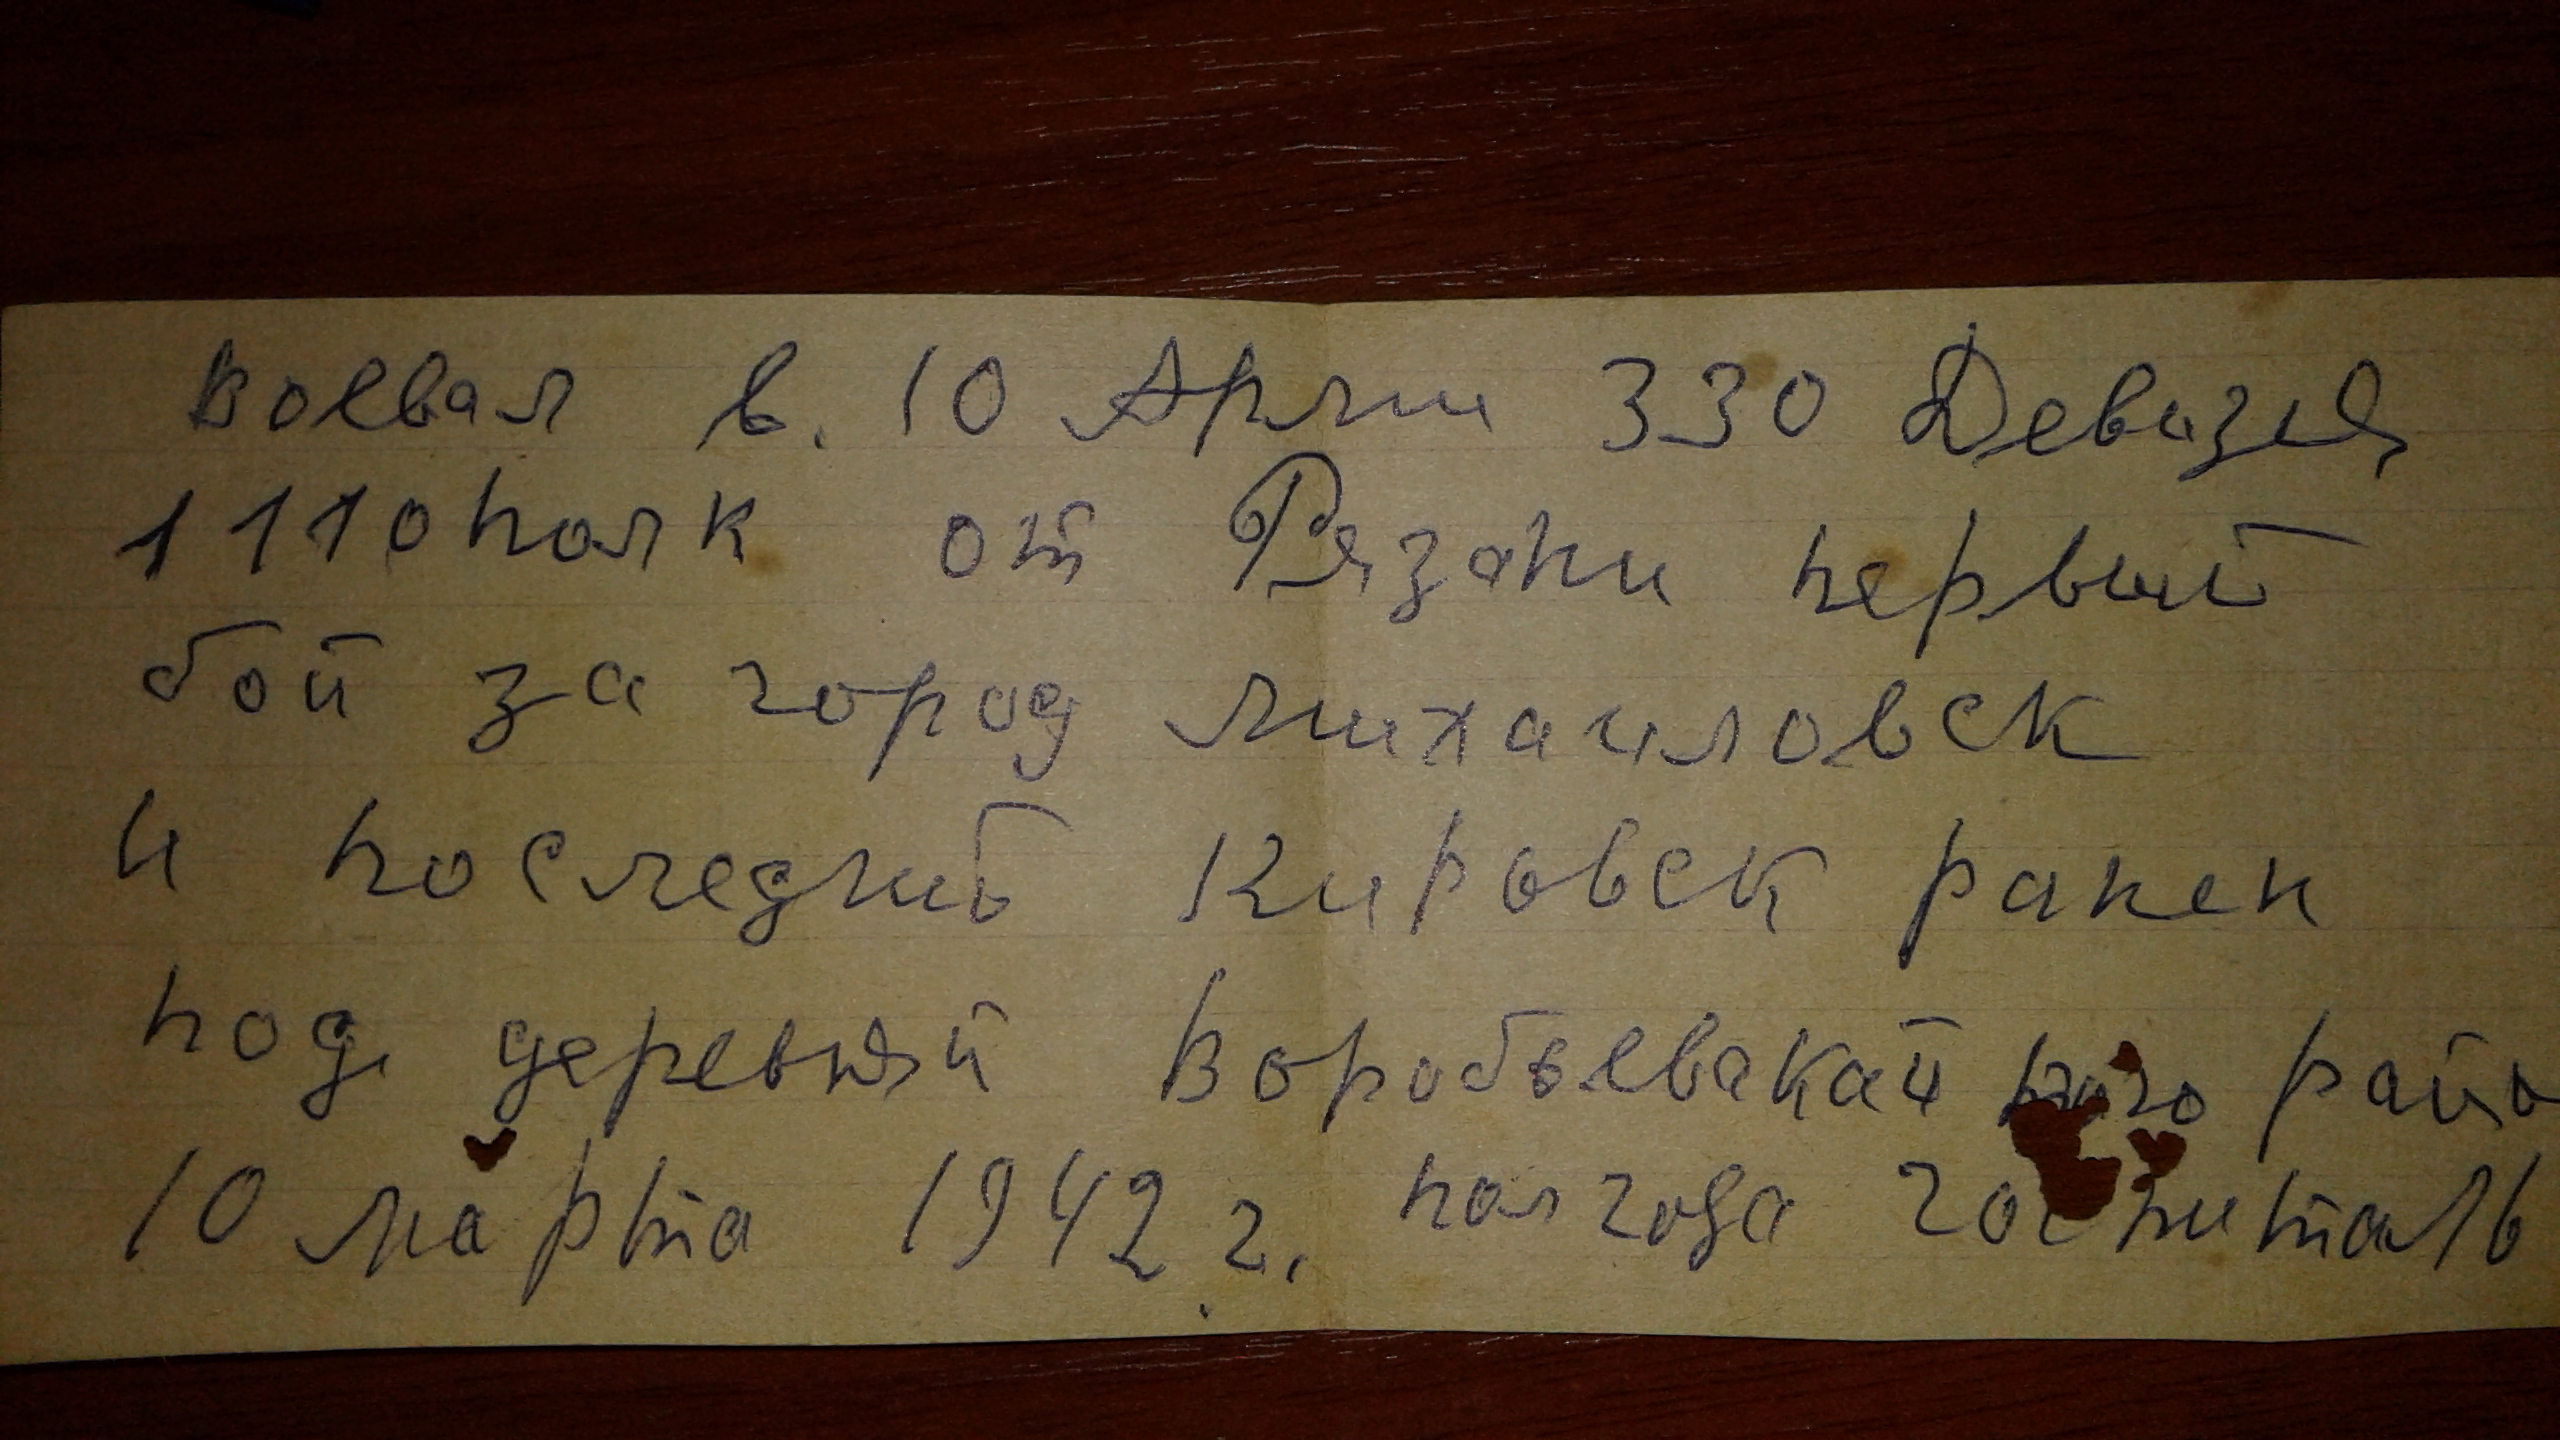 Воевал в. 10 Арми 330 Девизия
1110 полк от Рязани первый
бой за город михаиловск
и последний Кировск ранен
под деревняй Воробьевакай райо
10 марта 1942 г. пол года госпиталь